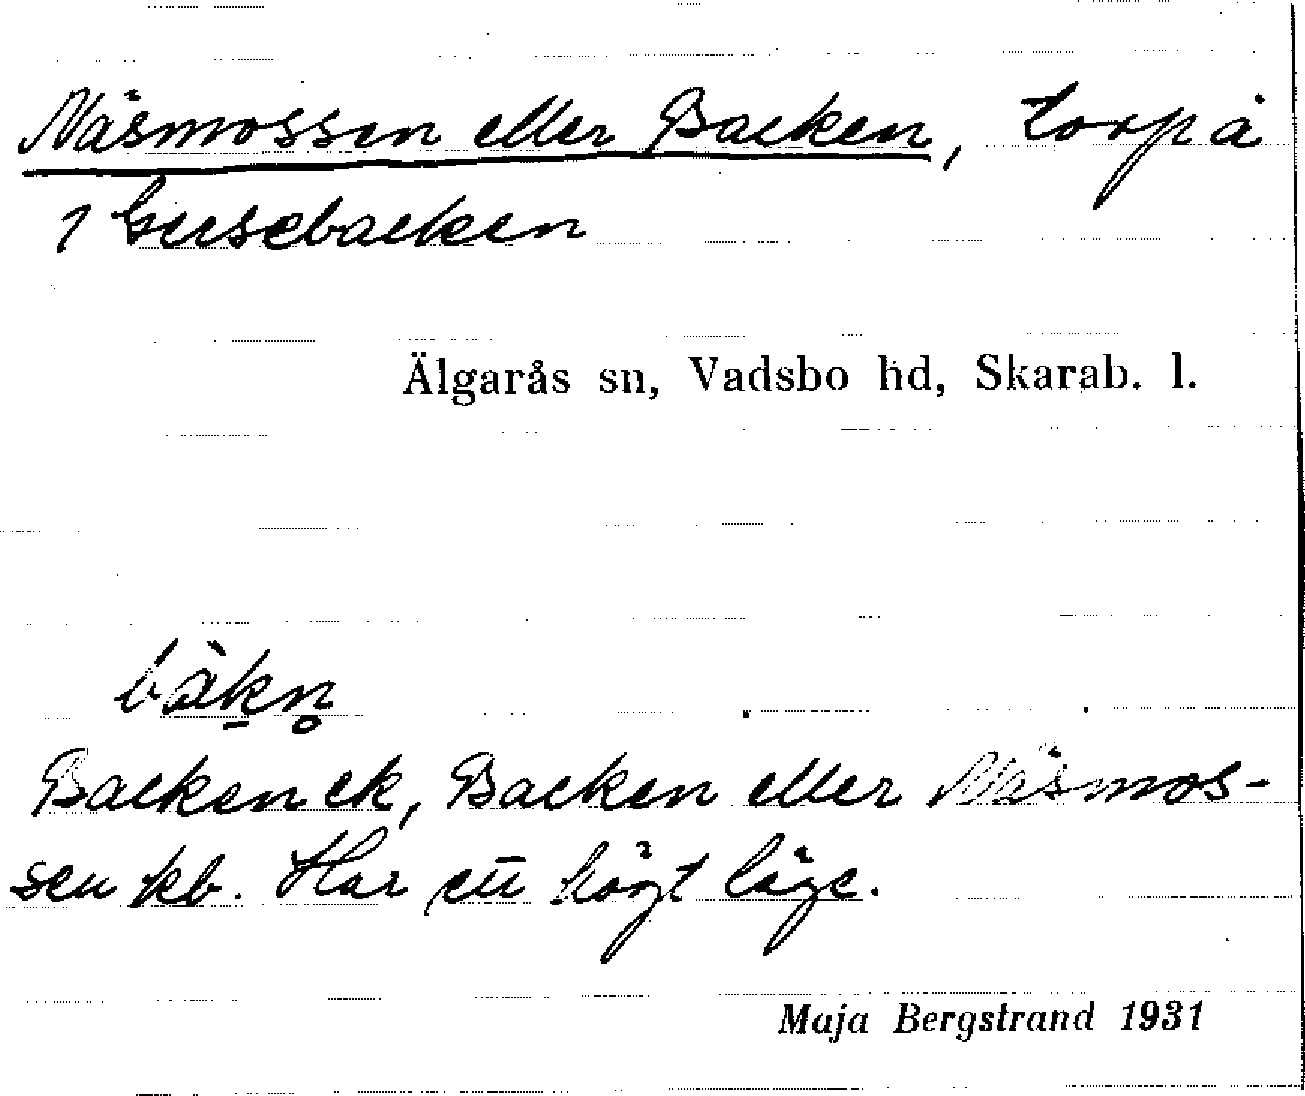 Näsmossen eller Backen, torp å
1 Gusebacken
Älgarås sn, Vadsbo hd, Skarab. l.
bàkn̥
Backen ek, Backen eller Näsmos-
sen kb. Har ett högt läge.
Maja Bergstrand 1931